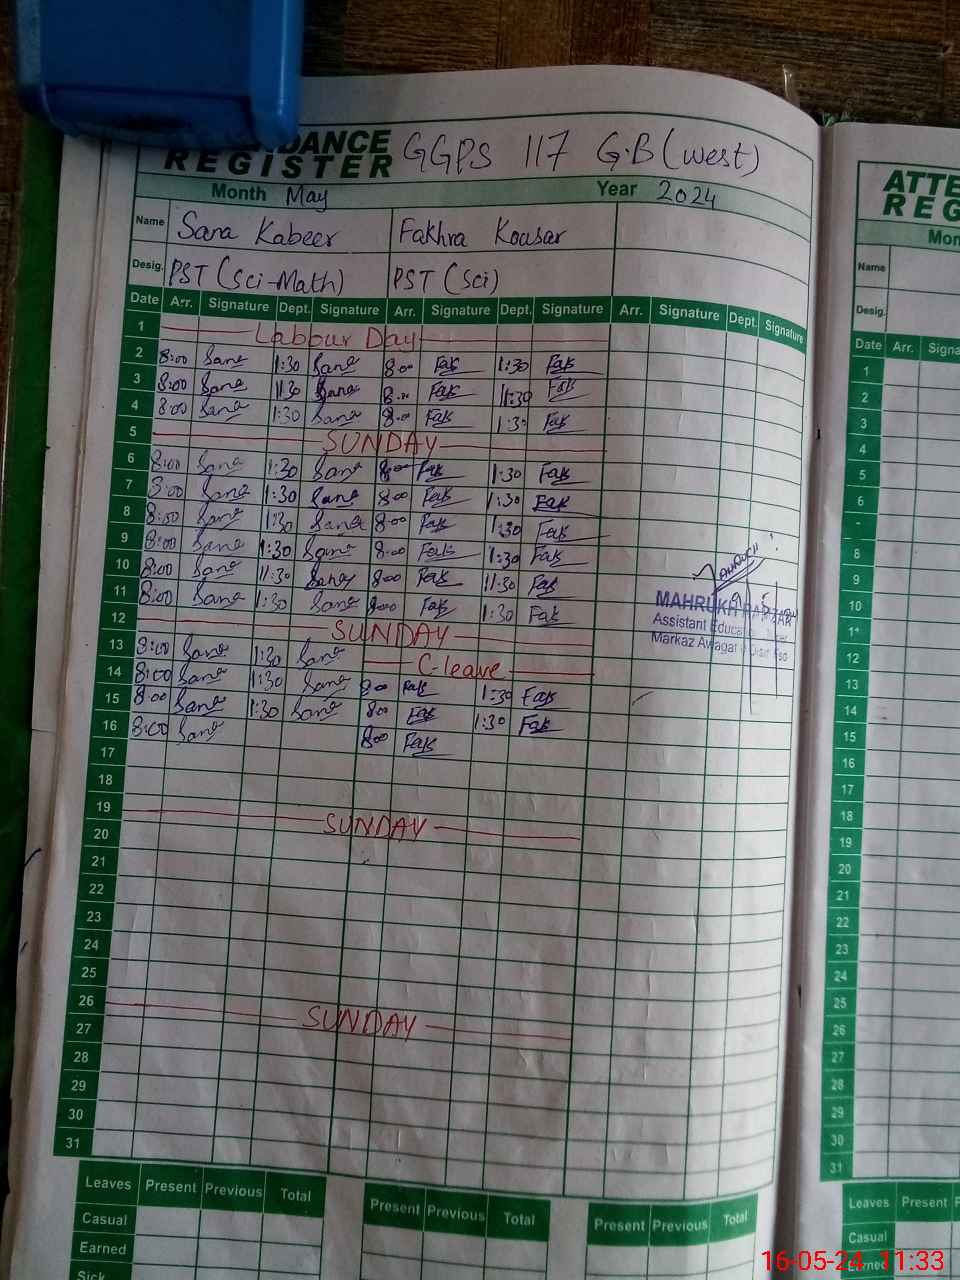 DANCE
REGISTER GGPS 117 G.B (west)
Month May Year 2024
Name Sana Kabeer Fakhra Kousar
Desig. PST (Sci-Math) PST (Sci)
Date Arr. Signature Dept. Signature Arr. Signature Dept. Signature Arr. Signature Dept. Signature
1 Labbur Day
2 8:00 Sana 1:30 Sana 8:00 Fak 1:30 Fak
3 8:00 Sana 1:30 Sana 8:00 Fak 1:30 Fak
4 8:00 Sana 1:30 Sana 8:00 Fak 1:30 Fak
5 SUNDAY
6 8:00 Sana 1:30 Sana 8:00 Fak 1:30 Fak
7 8:00 Sana 1:30 Sana 8:00 Fak 1:30 Fak
8 8:00 Sana 1:30 Sana 8:00 Fak 1:30 Fak
9 8:00 Sana 1:30 Sana 8:00 Fak 1:30 Fak
10 8:00 Sana 11:30 Sana 8:00 Fak 11:30 Fak
11 8:00 Sana 1:30 Sana 8:00 Fak 1:30 Fak
12 SUNDAY
13 8:00 Sana 1:30 Sana C-leave
14 8:00 Sana 1:30 Sana 8:00 Fak 1:30 Fak
15 8:00 Sana 1:30 Sana 8:00 Fak 1:30 Fak
16 8:00 Sana 8:00 Fak
17
18
19 SUNDAY
20
21
22
23
24
25
26 SUNDAY
27
28
29
30
31
MAHRUKH
Assistant
Markaz
Leaves Present Previous Total Present Previous Total Present Previous Total
Casual
Earned
Sick
ATTE
REG
Mon
Name
Desig.
Date Arr. Signa
1
2
3
4
5
6
8
9
10
12
13
14
15
16
17
18
19
20
21
22
23
24
25
26
27
28
29
30
31
Leaves Present
Casual
Earned
16-05-24 11:33